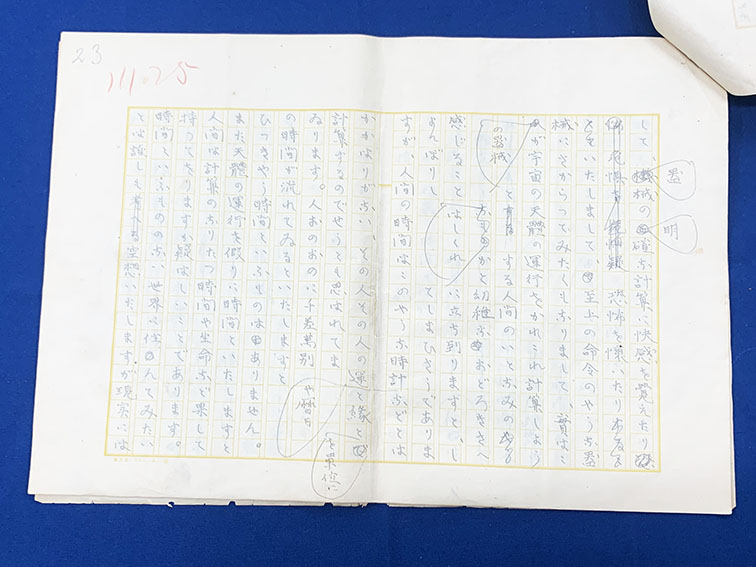 23
111.25
して、機械の確な計算に快感を覚えたり
器
明
恐怖を懐いたり
をいたしまして、至上の命令のやうな器
械にさからつてみたくもなりまして、實はこ
が宇宙の天體の運行をかれこれ計算しよう
の器械
とする人間のいとなみの
なものかと幼稚なおどろきさへ
感じること はしくれ に立ち到りますと、し
よんぼりし てしまひさうでありま
すが、人間の時間はこのやうな時計などとは
かかはりがない、その人その人の運と縁と
や暦日
を単位に
計算するのでせうとも思はれてま
ゐります。人おのおのに千差萬別
の時間が流れてゐるといたしますと
ひつきやう時間といふものはありません。
また天體の運行を假りに時間といたしますと
人間は計算のなりたつ時間や生命など果して
持つてをりますか疑はしいことであります。
時間といふもののない世界に住んでみたい
とは誰しも考へる空想といたしますが現実には